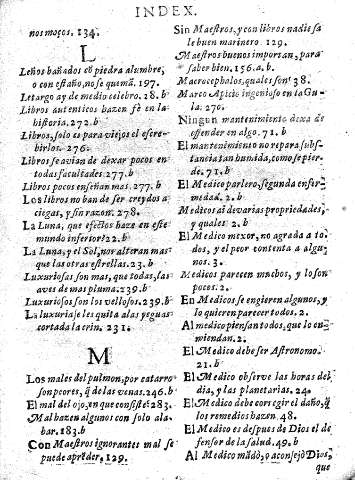 INDEX.
nos moços, 134.
L
Leños bañados cō piedra alumbre,
o con estaño, no se quemā. 197.
Letargo ay de medio celebro. 28. b
Libros autenticos hazen fè en la
historia. 272. b
Libros, solo es para viejos el escre-
birlos. 276.
Libros se avian de dexar pocos en
todas facultades. 277. b
Libros pocos enseñan mas. 277. b
Los libros no ban de ser creydos a
ciegas, y sin razon. 278.
La Luna, que efectos haze en este
mundo inferior? 22. b
La Luna, y el Sol, nos alteran mas
que las otras estrellas. 23. b
Luxuriosas son mas, que todas, las
aves de mas pluma. 239. b
Luxuriosos son los vellosos. 239. b
La luxuria se les quita a las yeguas
cortada la crin. 231.
M
Los males del pulmon, por catarro
son peores, q̄ de las venas. 246. b
El mal del ojo, en que consiste? 283.
Mal hazen algunos con solo ala-
bar. 183. b
Con Maestros ignorantes mal se
puede aprēder, 129.
Sin Maestros, y con libros nadie sa
le buen marinero. 129.
Maestros buenos importan, para
saber bien. 156. a. b.
Macrocephalos, quales son? 38.
Marco Apicio ingenioso en la Gu-
la. 270.
Ningun mantenimiento dexa de
ofender en algo. 71. b.
El mantenimiento no repara subs-
tancia tan humida, como se pier-
de. 71. b.
El Medico parlero, segunda enfer-
medad. 2. b
Medicos ai de varias propriedades,
y quales 2. b
El Medico mexor, no agrada a to-
dos, y el peor contenta a algu-
nos. 3.
Medicos parecen muchos, y lo son
pocos. 2.
En Medicos se engieren algunos, y
lo quieren parecer todos. 2.
Al medico piensan todos, que lo en-
miendan. 2.
El Medico debe ser Astronomo.
21. b.
El Medico observe las horas del
dia, y las planetarias. 24.
El Medico debe corregir el daño, q̄
los remedios hazen. 48.
El Medico es despues de Dios el de
fensor de la salud. 49. b
Al Medico mādò, o aconsejò Dios,
que